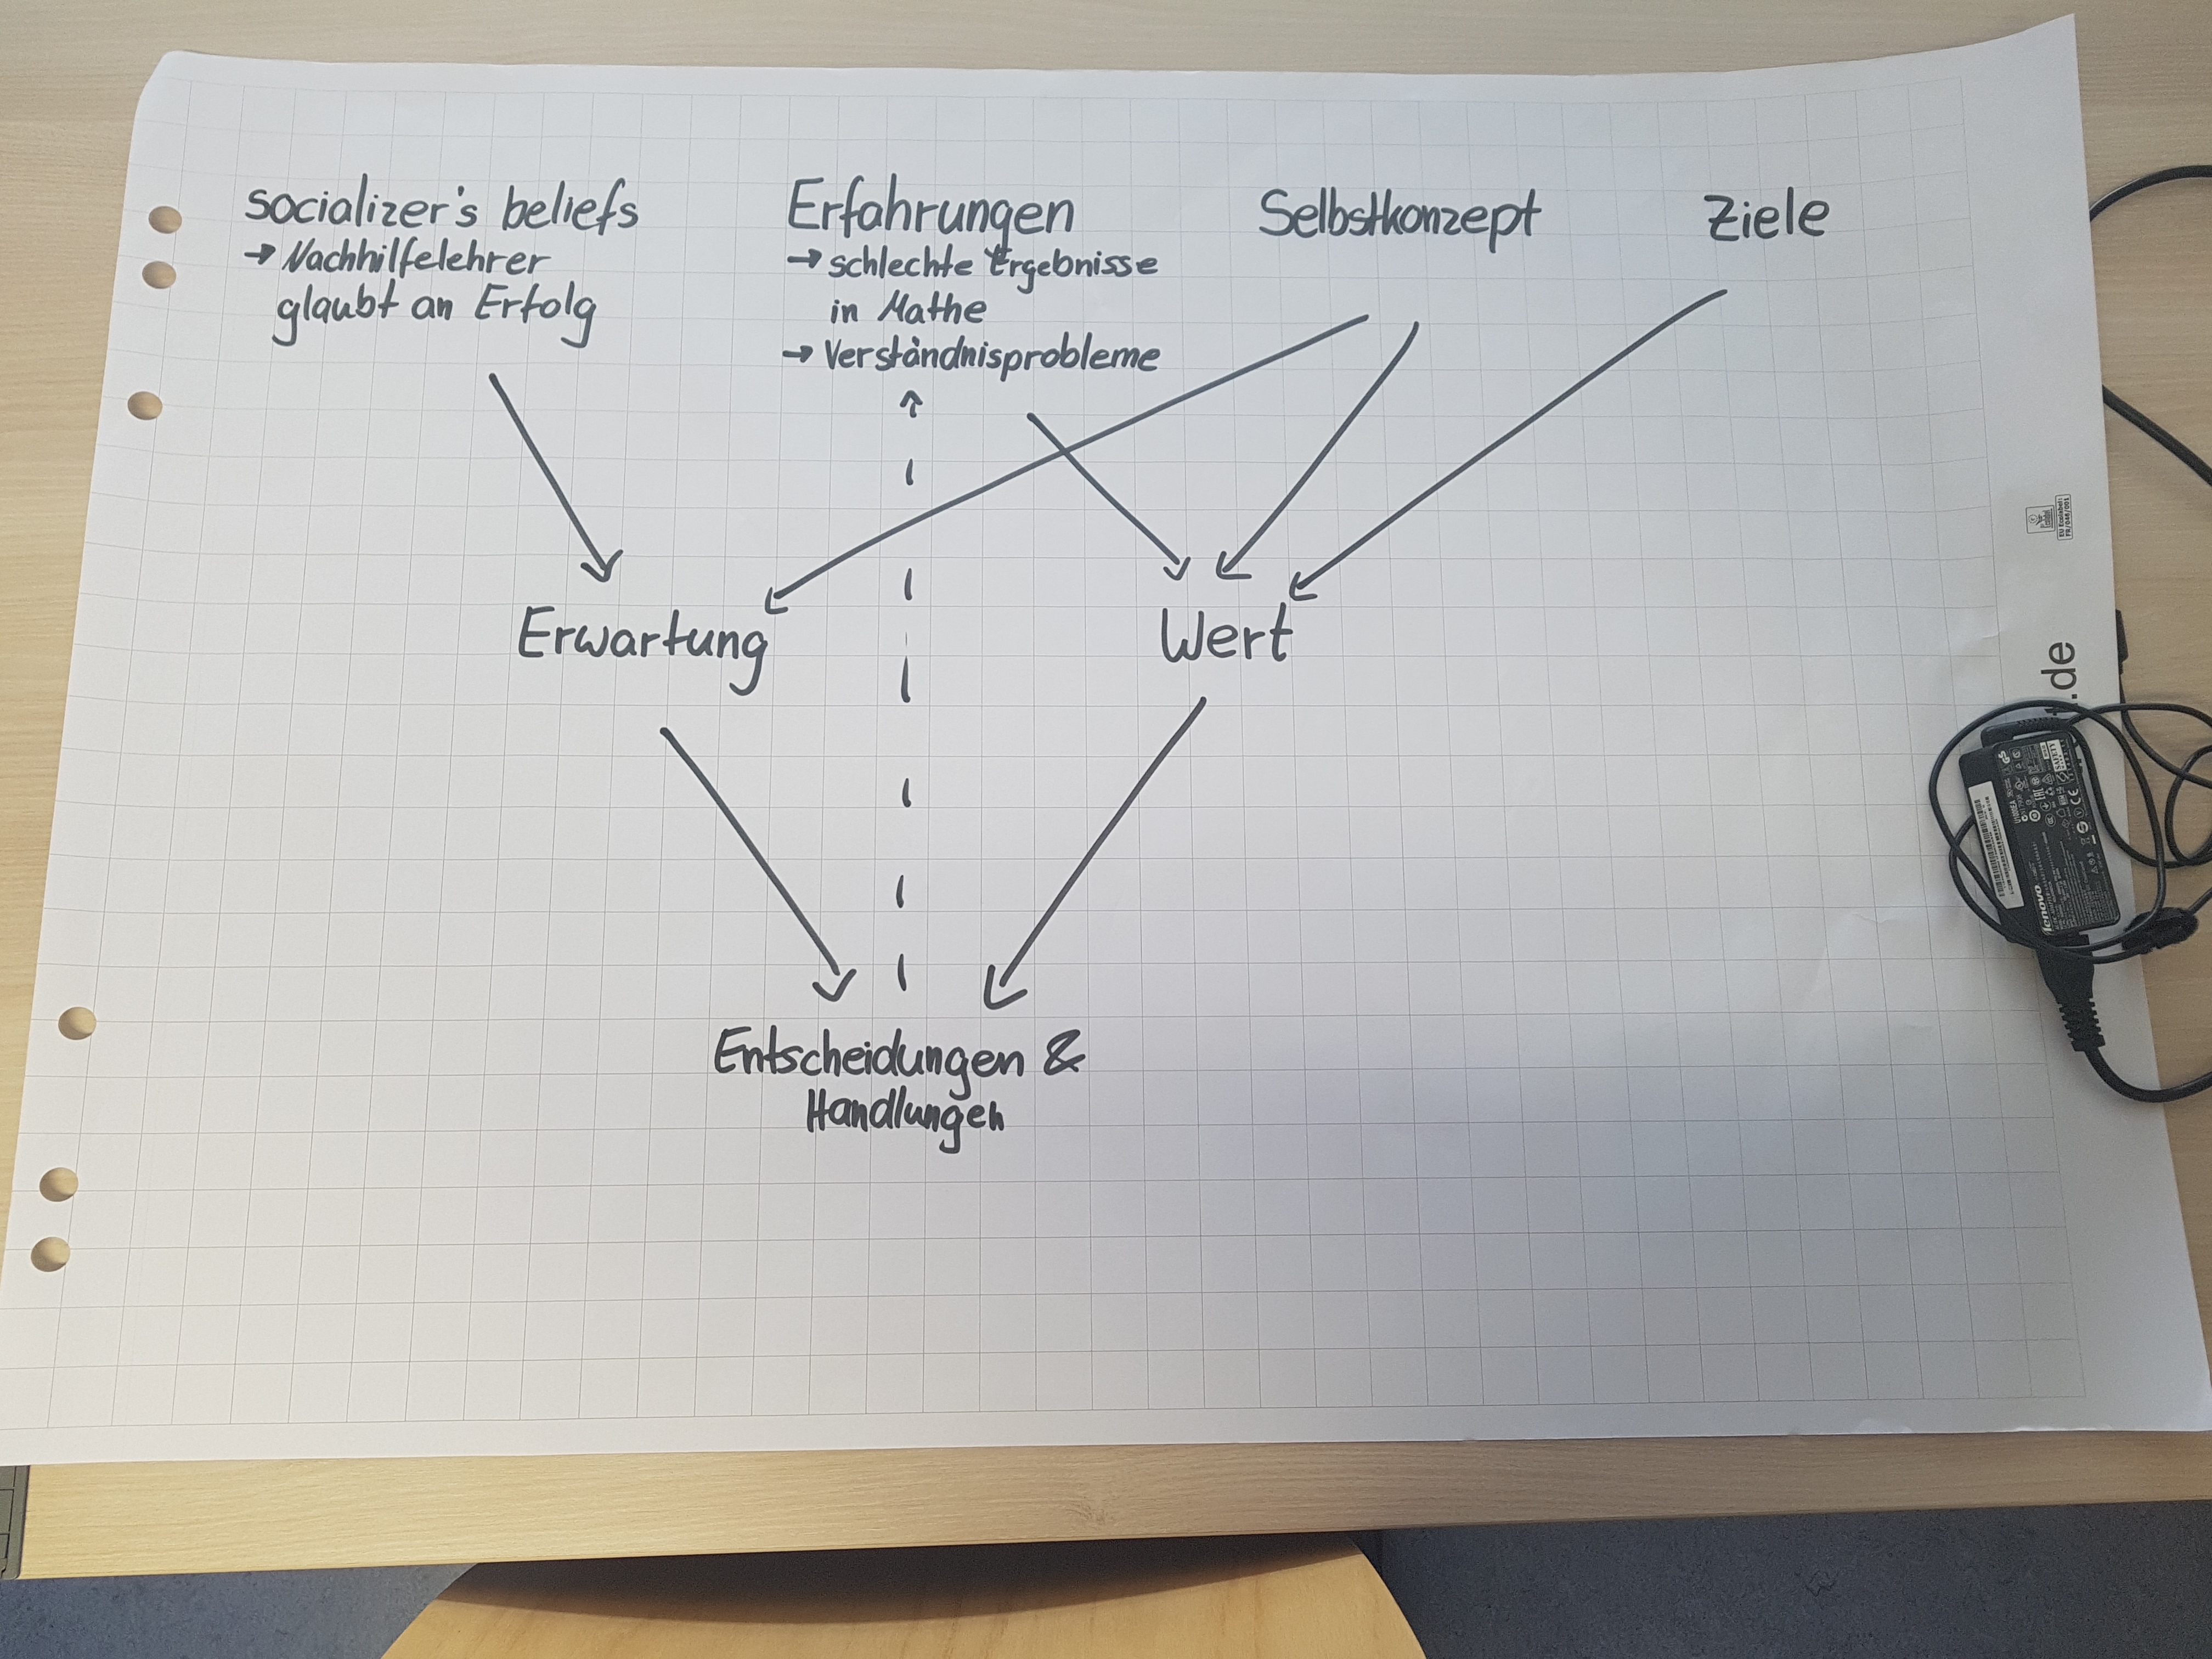 socializer's beliefs
→ Nachhilfelehrer
glaubt an Erfolg
Erfahrungen
→ schlechte Ergebnisse
in Mathe
→ Verständnisprobleme
Selbstkonzept
Ziele
Erwartung
Wert
Entscheidungen &
Handlungen
.de
EU Ecolabel:
FR/046/001
lenovo
SAFETY